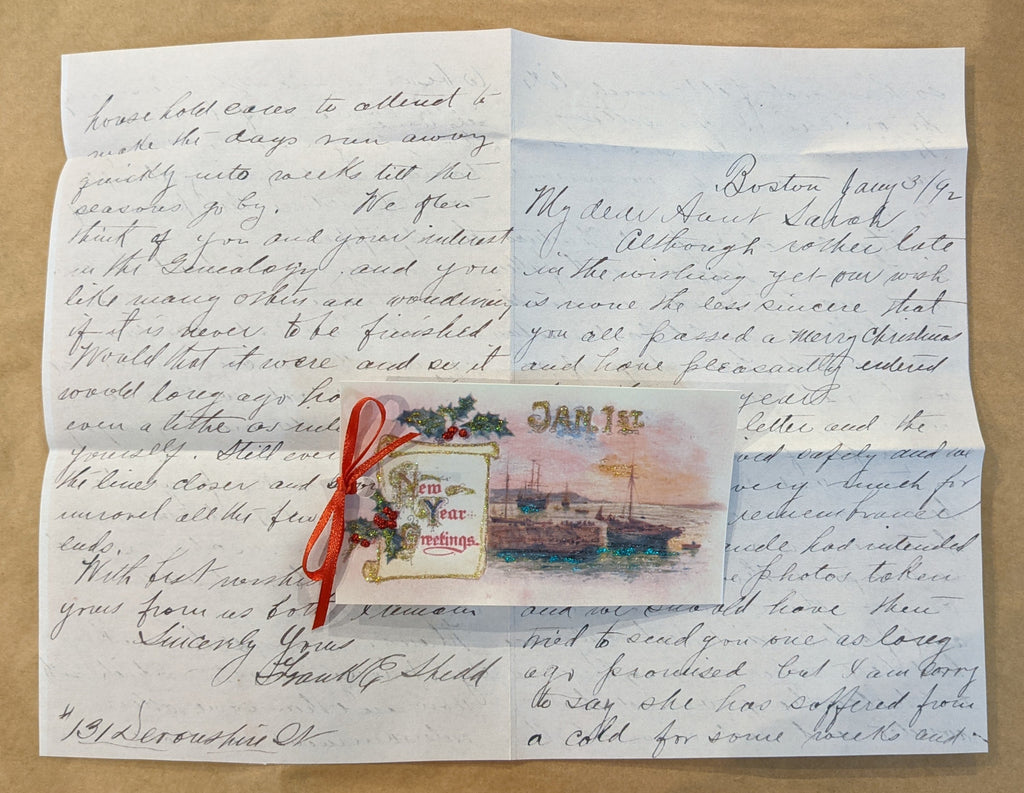 Boston Jany 3/92
My dear Aunt Sarah
Although rather late
in the wishing yet our wish
is none the less sincere that
you all passed a Merry Christmas
and have pleasantly entered
years
letter and the
safely and we
very much for
remembrance
had intended
photos taken
and we should have then
tried to send you one as long
ago promised but I am sorry
to say she has suffered from
a cold for some weeks and
household cares to attend to
make the days run away
quickly into weeks till the
seasons go by. We often
think of you and your interest
in the Genealogy. and you
like many others are wondering
if it is never to be finished
Would that it were and so it
would long ago
even a tithe as
yourself. Still
the lines closer and
unravel all the few
ends.
With best wishes
yours from us both I remain
Sincerely Yours
Frank E Shedd
#131 Devonshire St
JAN. 1ST
New
Year
Greetings.